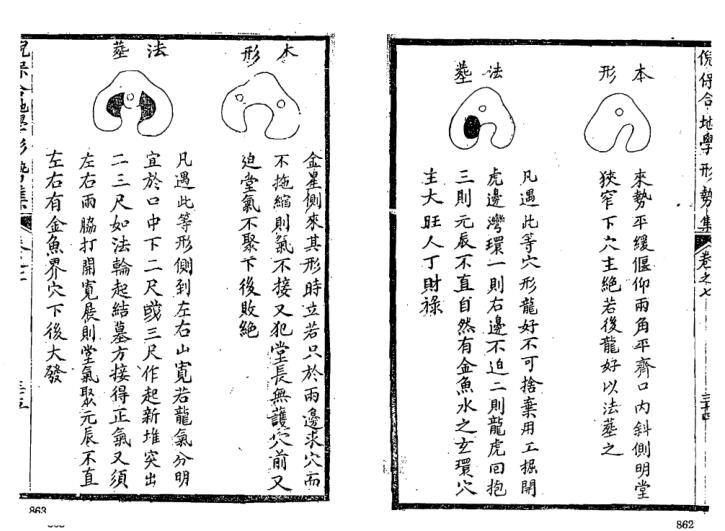 倪保合地學形勢集 卷之七 三十四
本形
來勢平緩偃仰兩角平齊口內斜側明堂
狹窄下穴主絕若後龍好以法葬之
法葬
凡遇此等穴形龍好不可捨棄用工掘開
虎邊灣環一則右邊不迫二則龍虎回抱
三則元辰不直自然有金魚水之玄環穴
主大旺人丁財祿
862
本形
金星側來其形時立若只於兩邊求穴而
不拖縮則氣不接又犯堂長無護穴前又
迫堂氣不聚下後敗絕
法葬
凡遇此等形側到左右山寬若龍氣分明
宜於口中下二尺或三尺作起新堆突出
二三尺如法輪起結墓方接得正氣又須
左右兩脇打開寬展則堂氣聚元辰不直
左右有金魚界穴下後大發
倪保合地學形勢集
三十五
863